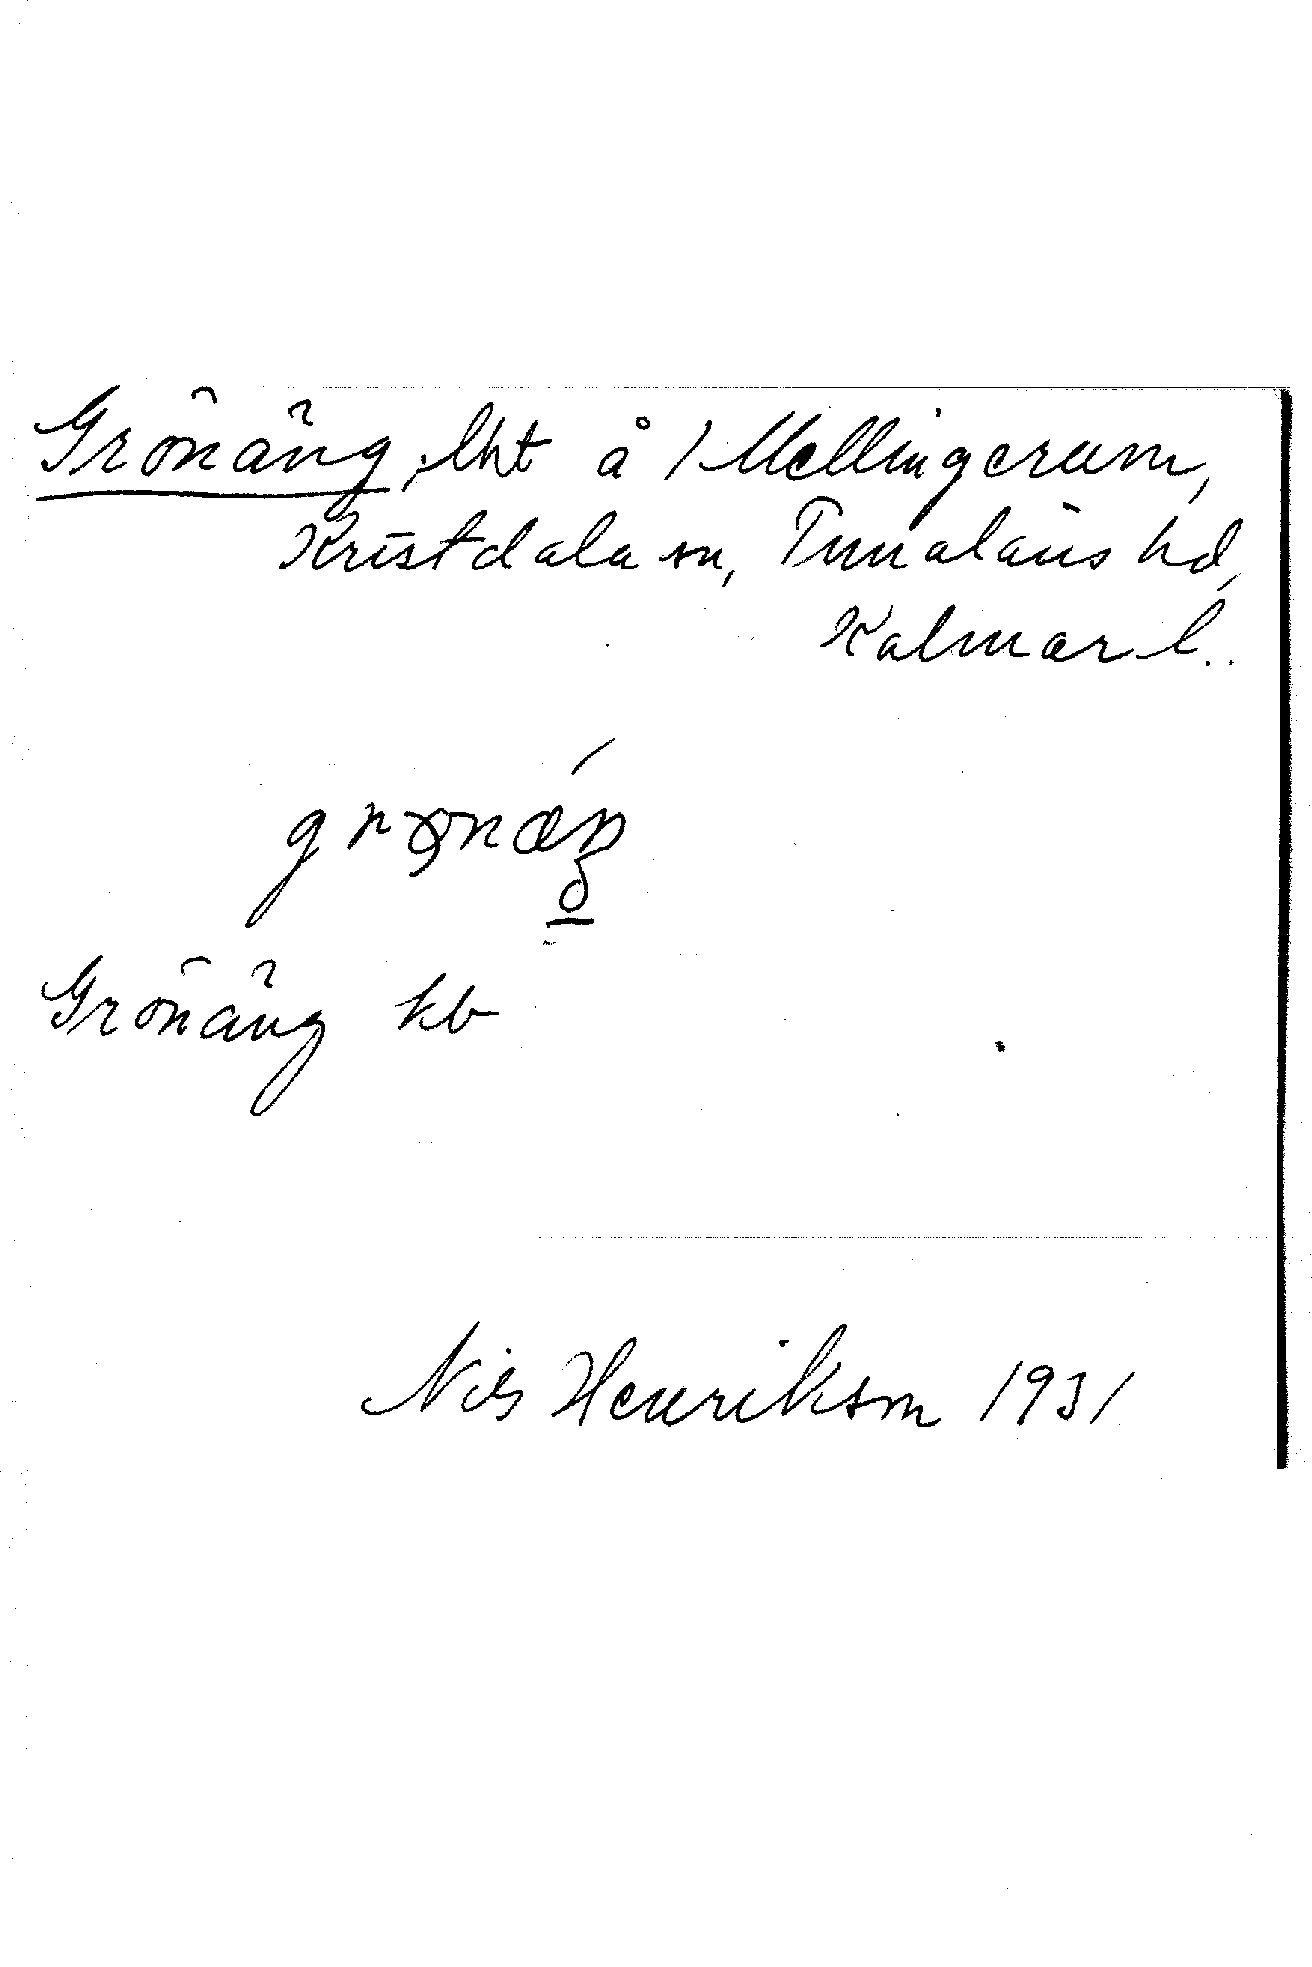 Grönäng, lht å 1 Mellingerum,
Kristdala sn, Tunaläns hd,
Kalmar l.
Grönäng kb
Nils Henrikson 1931